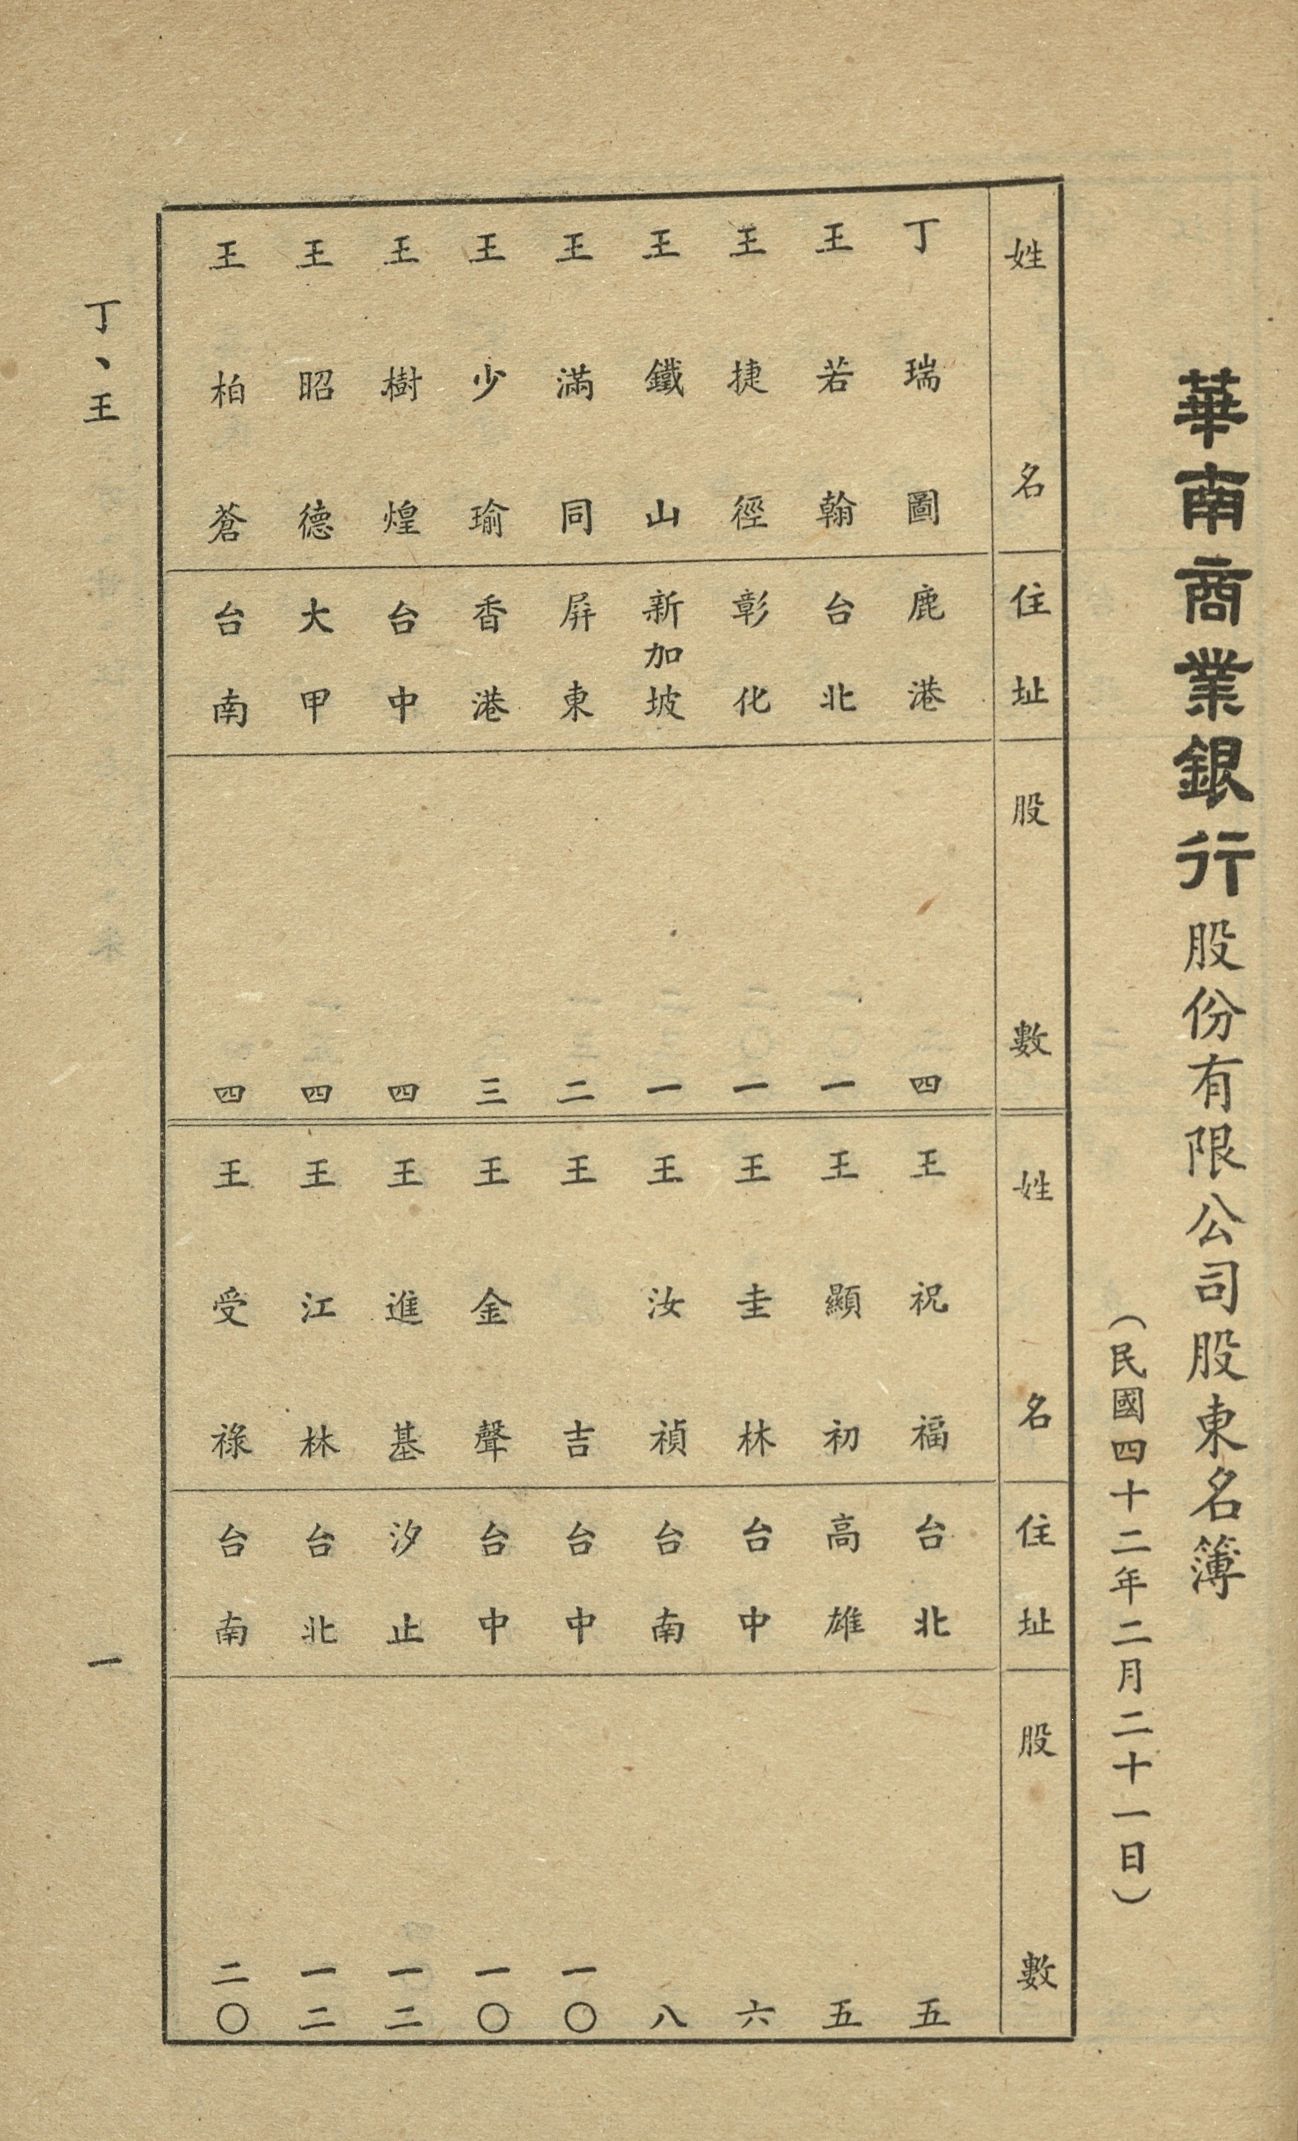 華南商業銀行股份有限公司股東名簿
（民國四十二年二月二十一日）
姓名 住址 股數 姓名 住址 股數
丁瑞圖 鹿港 四 王祝福 台北 五
王若翰 台北 一 王顯初 高雄 五
王捷徑 彰化 一 王圭林 台中 六
王鐵山 新加坡 一 王汝禎 台南 八
王滿同 屏東 二 王吉 台中 一〇
王少瑜 香港 三 王金聲 台中 一〇
王樹煌 台中 四 王進基 汐止 一二
王昭德 大甲 四 王江林 台北 一二
王柏蒼 台南 四 王受祿 台南 二〇
丁、王 一